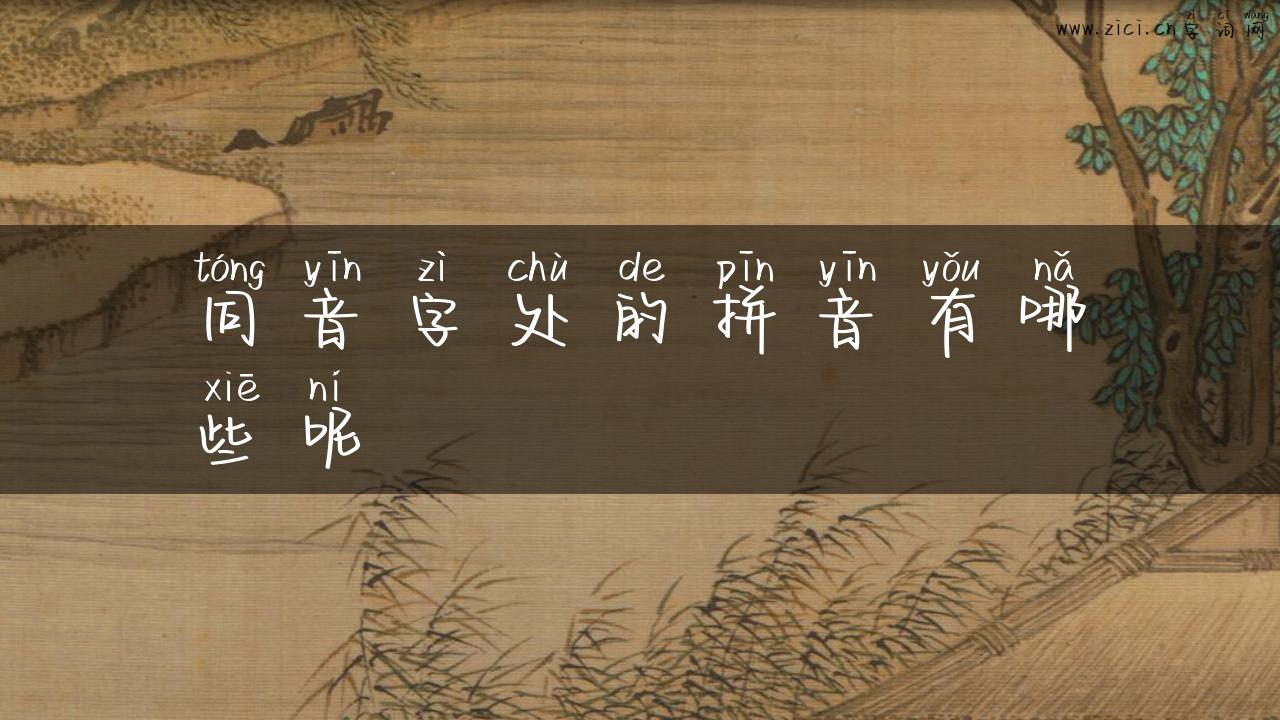 zì cí wǎng
www.zici.cn字词网
tóng yīn zì chù de pīn yīn yǒu nǎ
同音字处的拼音有哪
xiē ní
些呢